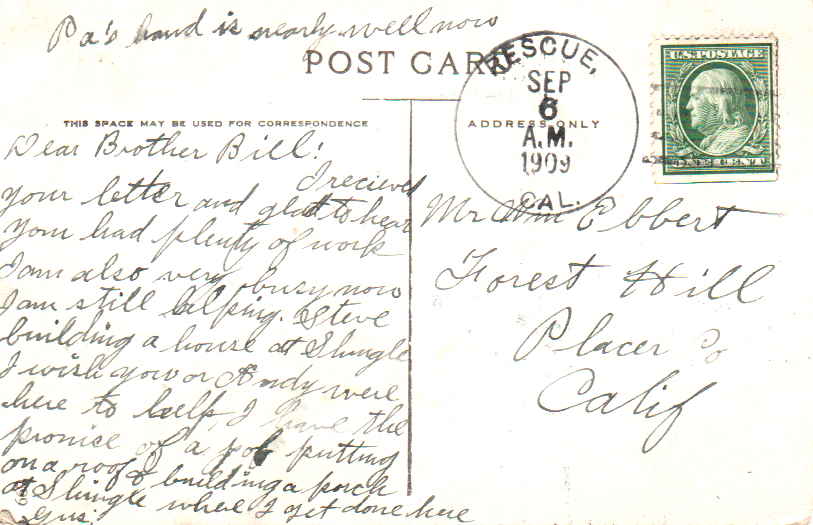 Pa's hand is nearly well now
POST CARD
THIS SPACE MAY BE USED FOR CORRESPONDENCE
ADDRESS ONLY
RESCUE,
SEP
6
A.M.
1909
CAL.
U.S. POSTAGE
ONE CENT
Dear Brother Bill!
I recieved
your letter and glad to hear
you had plenty of work
I am also very busy now
I am still helping Steve
building a house at Shingle
I wish you or Andy were
here to help, I have the
promice of a job putting
on a roof & building a porch
at Shingle when I get done here
Gus.
Mr Wm Ebbert
Forest Hill
Placer Co
Calif